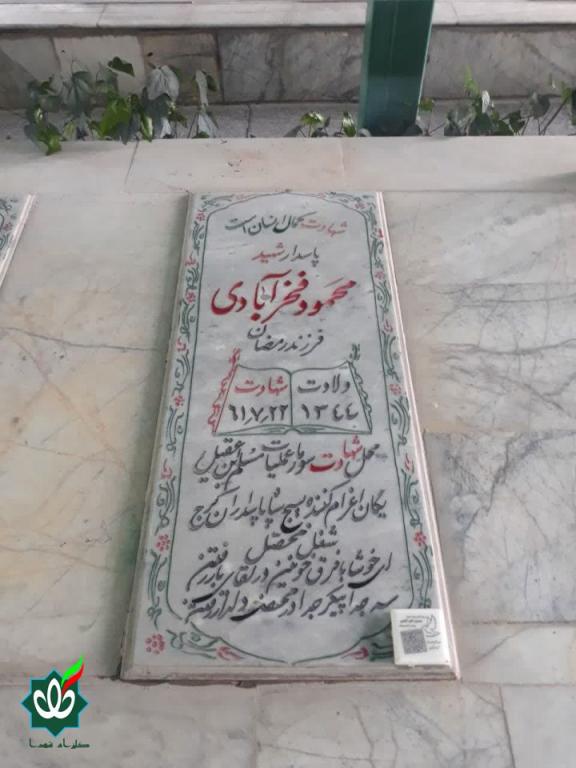 شهادت کمال انسان است
پاسدار شهید
محمود فخرآبادی
فرزند رمضان
ولادت شهادت
۱۳۴۴ ۶۱٫۷٫۲۲
محل شهادت سومار عملیات مسلم بن عقیل
یگان اعزام کننده بسیج سپاه پاسداران کرج
شغل محصل
ای خوشا با فرق خونین در لقای یار رفتن
سر جدا پیکر جدا در محضر دلدار رفتن
گلزار شهدا